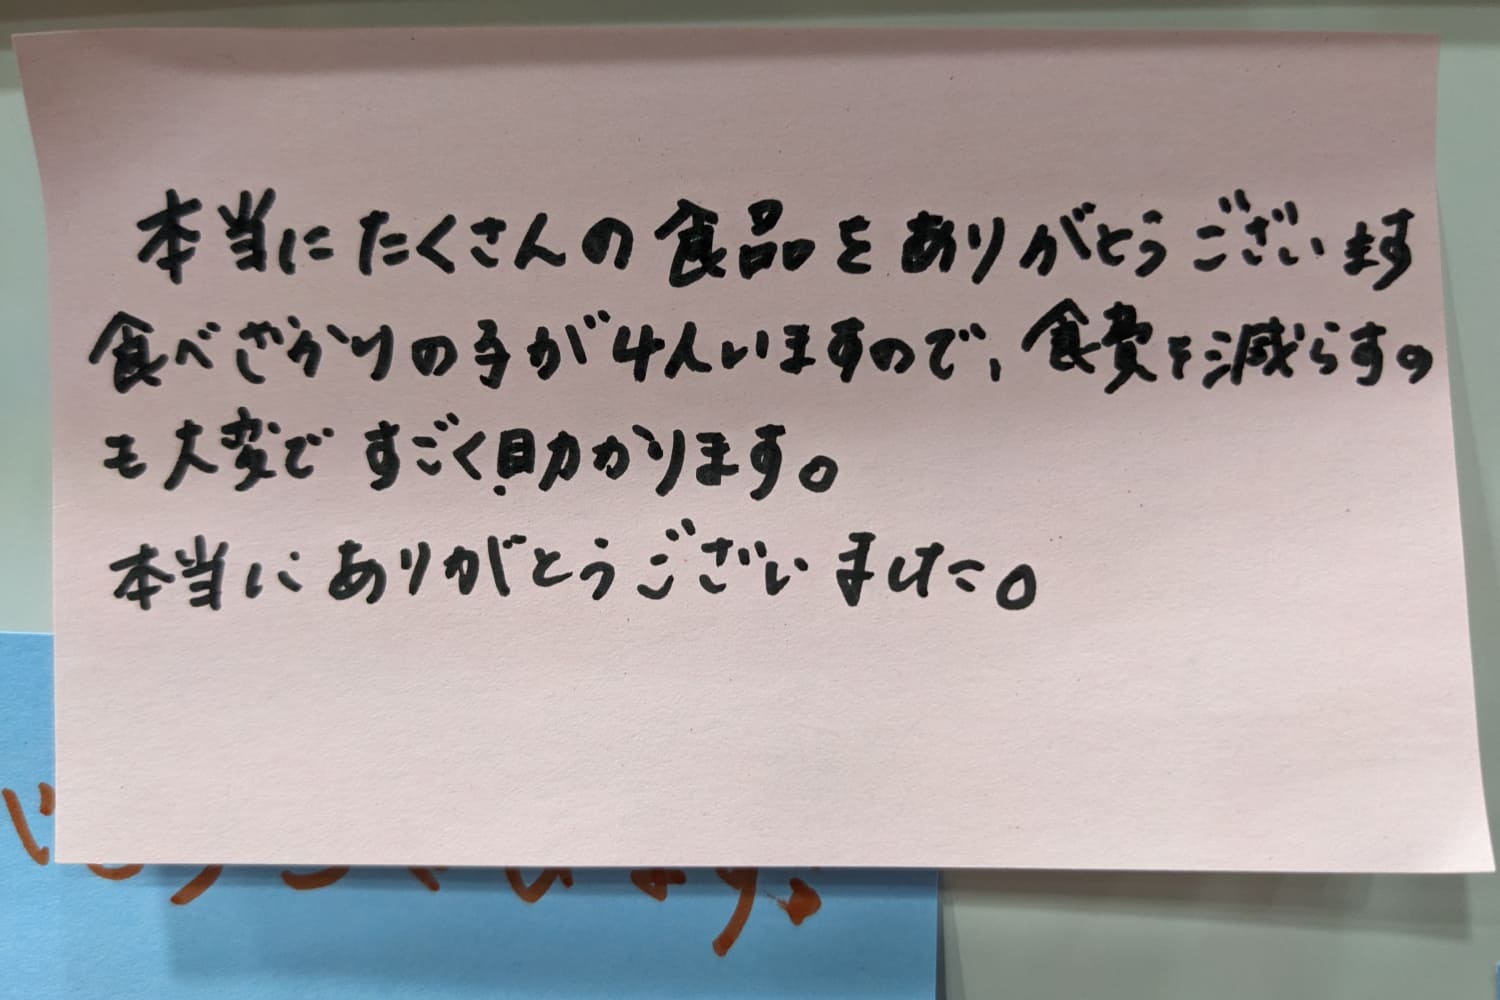 本当にたくさんの食品をありがとうございます
食べざかりの子が4人いますので、食費を減らすの
も大変ですごく助かります。
本当にありがとうございました。
います。